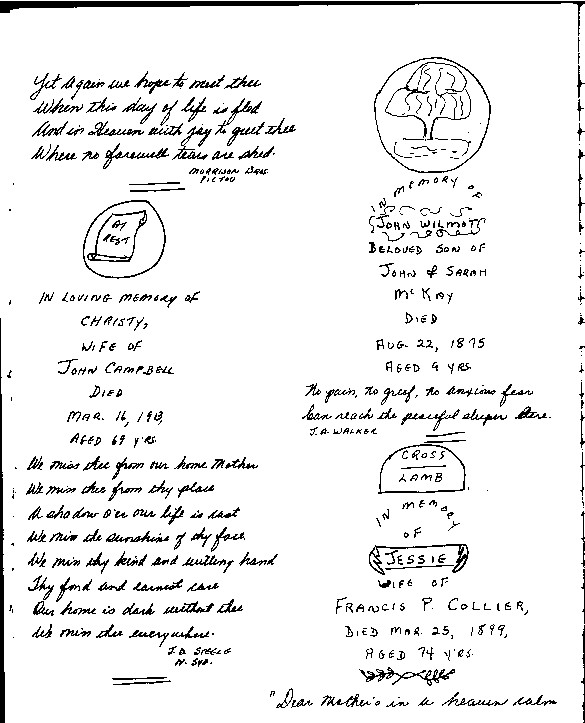 Yet Again we hope to meet thee
When this day of life is fled
And in Heaven with joy to greet thee
Where no farewell tears are shed.
MORRISON BROS.
PICTOU
AT
REST
IN LOVING MEMORY OF
CHRISTY,
WIFE OF
JOHN CAMPBELL
DIED
MAR. 16, 1913,
AGED 69 YRS.
We miss thee from our home Mother
We miss thee from thy place
A shadow o'er our life is cast
We miss the sunshine of thy face
We miss thy kind and willing hand
Thy fond and earnest care
Our home is dark without thee
We miss thee everywhere.
J.D. STEELE
N. SYD.
IN MEMORY OF
JOHN WILMOT
BELOVED SON OF
JOHN & SARAH
McKAY
DIED
AUG. 22, 1875
AGED 9 YRS.
No pain, no grief, no anxious fear
Can reach the peaceful sleeper here.
J.A. WALKER
CROSS
LAMB
IN MEMORY
OF
JESSIE
WIFE OF
FRANCIS P. COLLIER,
DIED MAR. 25, 1899,
AGED 74 YRS.
"Dear Mother's in a heaven calm